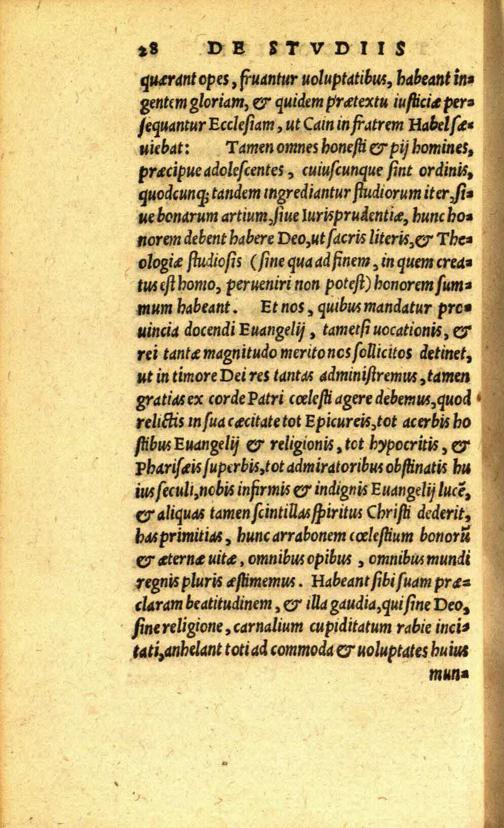 28 DE STVDIIS
quærant opes, fruantur uoluptatibus, habeant in⸗
gentem gloriam, & quidem prætextu iusticiæ per⸗
sequantur Ecclesiam, ut Cain in fratrem Habel sæ⸗
uiebat: Tamen omnes honesti & pij homines,
præcipue adolescentes, cuiuscunque sint ordinis,
quodcunq; tandem ingrediantur studiorum iter, si⸗
ue bonarum artium, siue Iurisprudentiæ, hunc ho⸗
norem debent habere Deo, ut sacris literis, & The⸗
ologiæ studiosis (sine qua ad finem, in quem crea⸗
tus est homo, perueniri non potest) honorem sum⸗
mum habeant. Et nos, quibus mandatur pro⸗
uincia docendi Euangelij, tametsi uocationis, &
rei tantæ magnitudo merito nos sollicitos detinet,
ut in timore Dei res tantas administremus, tamen
gratias ex corde Patri cœlesti agere debemus, quod
relictis in sua cæcitate tot Epicureis, tot acerbis ho
stibus Euangelij & religionis, tot hypocritis, &
Pharisæis superbis, tot admiratoribus obstinatis hu
ius seculi, nobis infirmis & indignis Euangelij lucē,
& aliquas tamen scintillas spiritus Christi dederit,
has primitias, hunc arrabonem cœlestium bonorū
& æternæ uitæ, omnibus opibus, omnibus mundi
regnis pluris æstimemus. Habeant sibi suam præ⸗
claram beatitudinem, & illa gaudia, qui sine Deo,
sine religione, carnalium cupiditatum rabie inci⸗
tati, anhelant toti ad commoda & uoluptates huius
mun⸗